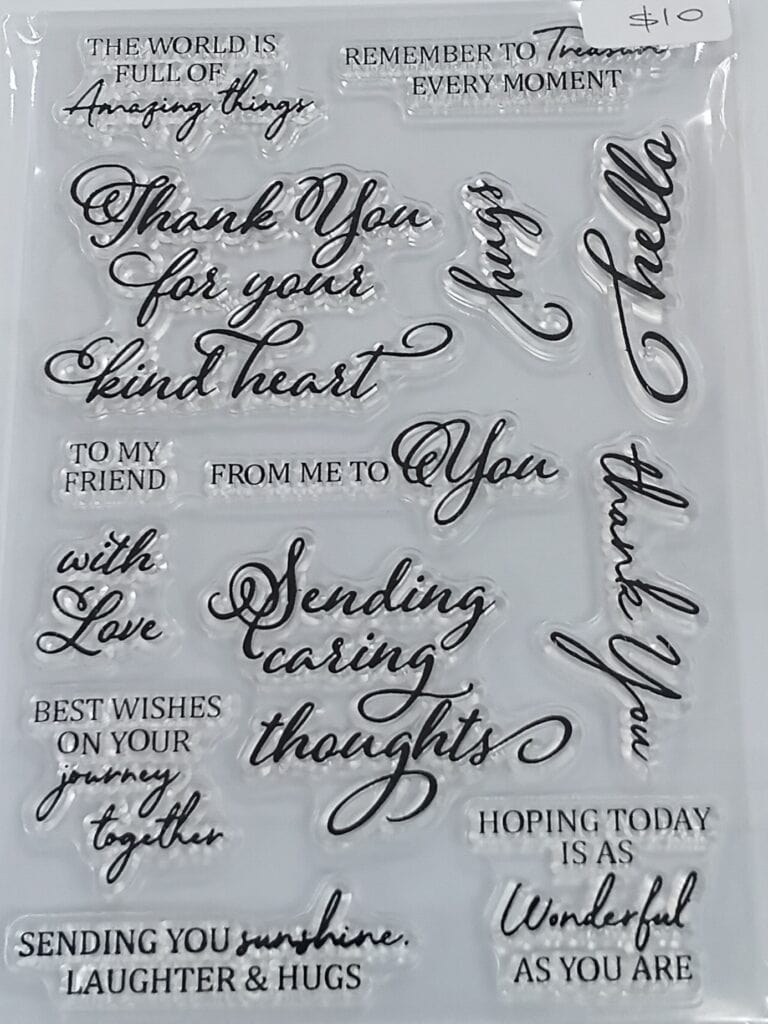 $10
THE WORLD IS
FULL OF
Amazing things
REMEMBER TO Treasure
EVERY MOMENT
Thank You
for your
kind heart
hugs
hello
TO MY
FRIEND
FROM ME TO You
thank You
with
Love
Sending
caring
thoughts
BEST WISHES
ON YOUR
journey
together
HOPING TODAY
IS AS
Wonderful
AS YOU ARE
SENDING YOU sunshine.
LAUGHTER & HUGS